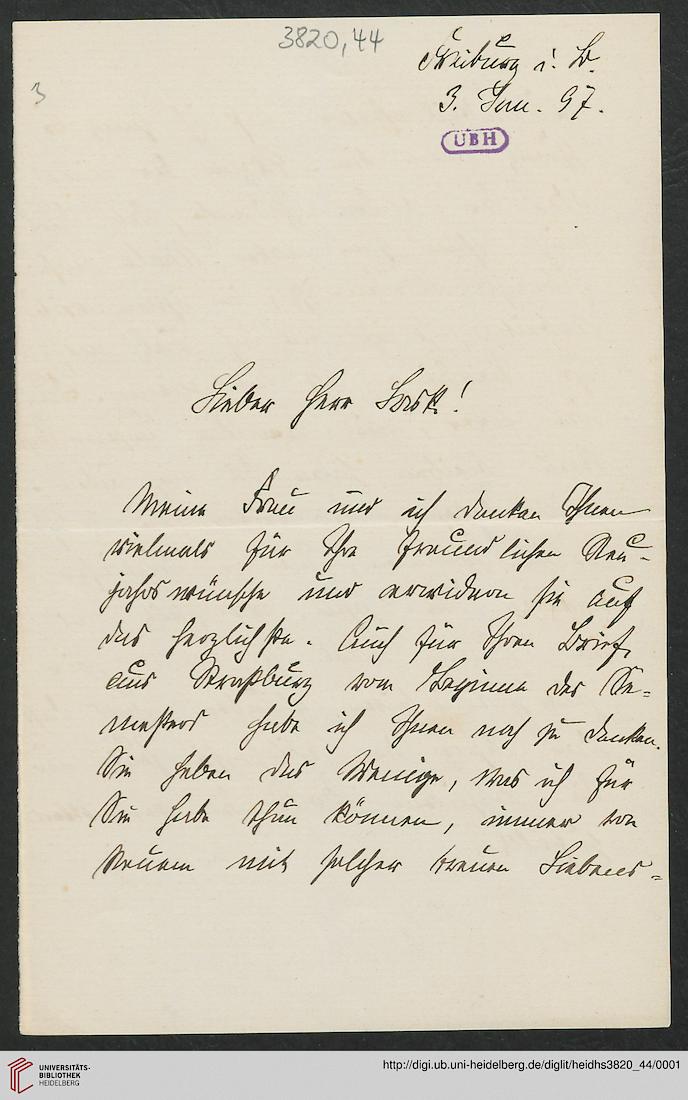 3820,44
3
Freiburg i. B.
3. Jan. 97.
UBH
Lieber Herr Lask!
Meine Frau und ich danken Ihnen
vielmals für Ihre freundlichen Neu-
jahrswünsche und erwidern sie auf
das herzlichste. Auch für Ihren Brief
aus Straßburg vom Beginne des Se-
mesters habe ich Ihnen noch zu danken.
Sie haben das Wenige, was ich für
Sie habe thun können, immer von
Neuem mit solcher treuen Liebens-
UNIVERSITÄTS-
BIBLIOTHEK
HEIDELBERG
http://digi.ub.uni-heidelberg.de/diglit/heidhs3820_44/0001